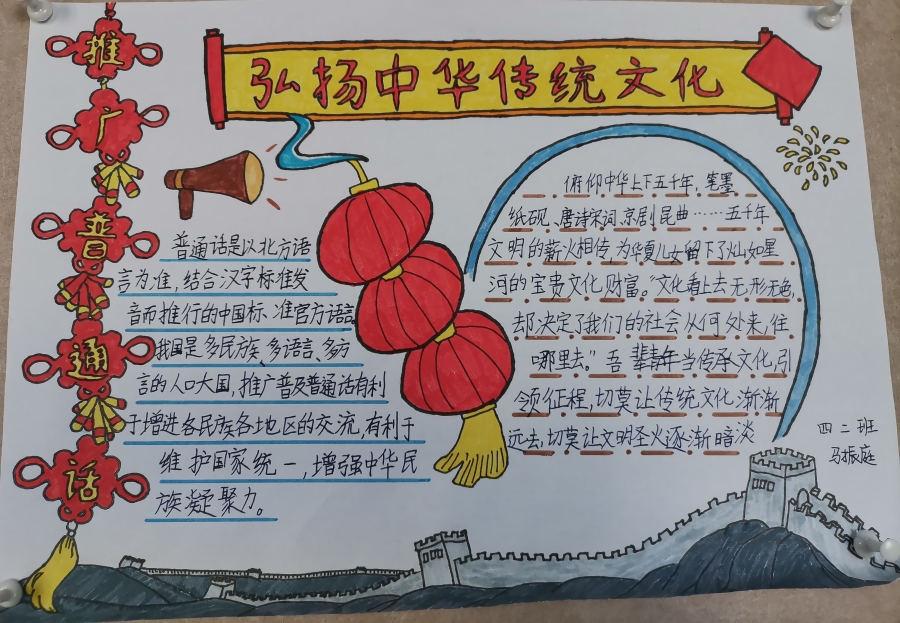 弘扬中华传统文化
推
广
普
通
话
普通话是以北方语
言为准,结合汉字标准发
音而推行的中国标、准官方语言。
我国是多民族、多语言、多方
言的人口大国,推广普及普通话有利
于增进各民族各地区的交流,有利于
维护国家统一,增强中华民
族凝聚力。
俯仰中华上下五千年,笔墨
纸砚、唐诗宋词,京剧昆曲……五千年
文明的薪火相传,为华夏儿女留下了灿如星
河的宝贵文化财富。“文化看上去无形无色,
却决定了我们的社会从何处来,往
哪里去。”吾辈青年当传承文化,引
领征程,切莫让传统文化渐渐
远去,切莫让文明圣火逐渐暗淡
四二班
马振庭